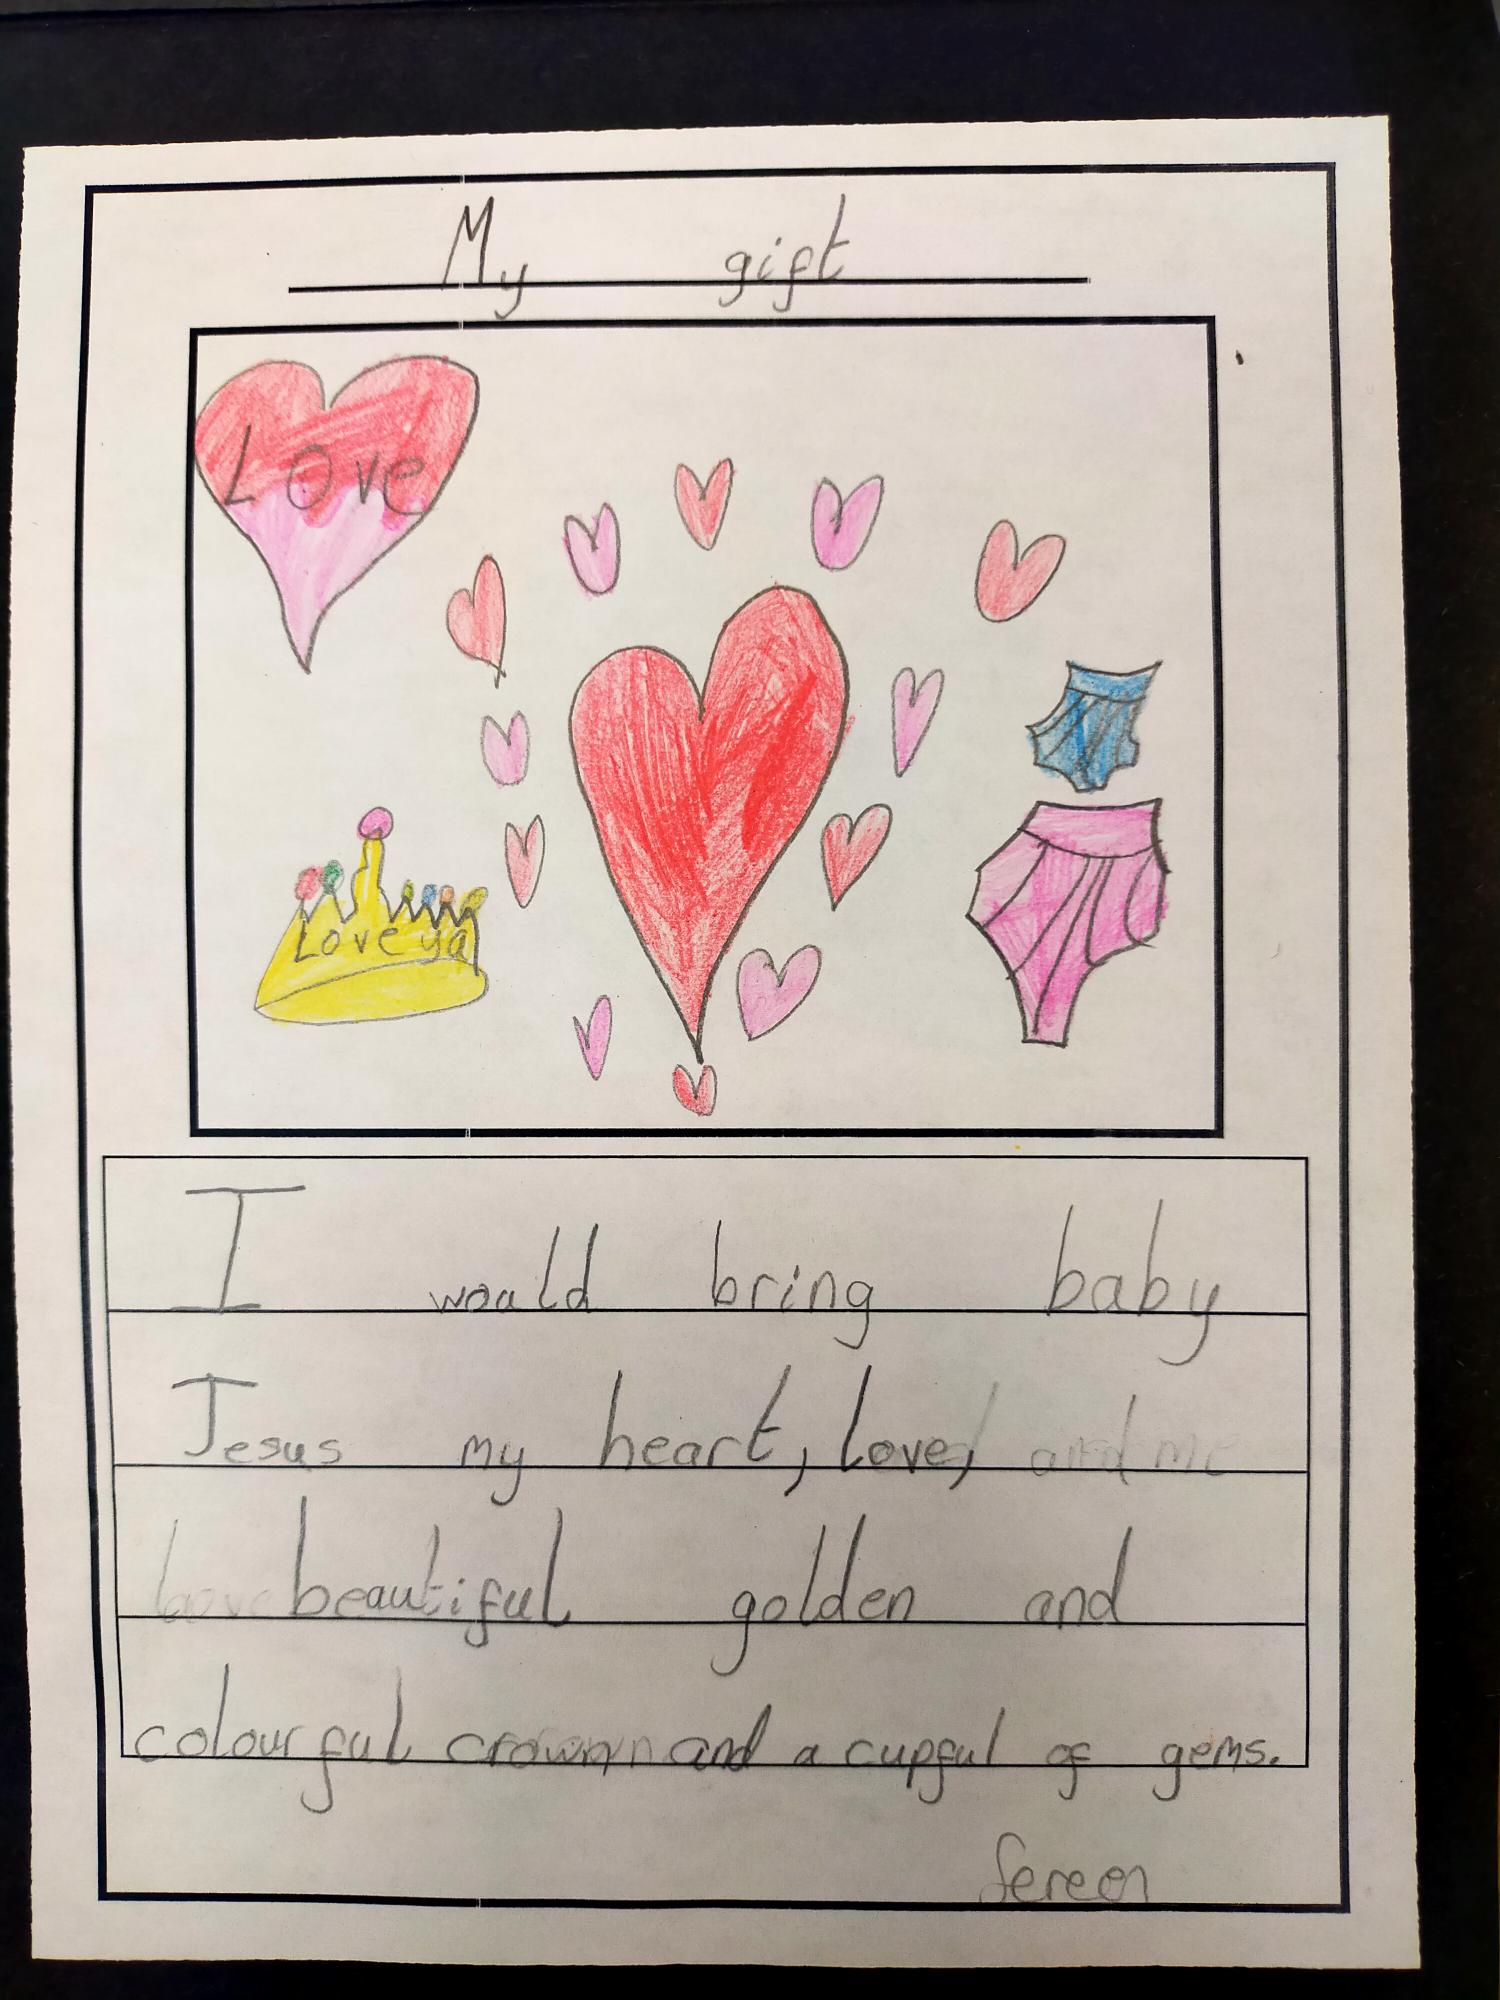 My gift
Love
Love ya
I would bring baby
Jesus my heart, love,
beautiful golden and
colourful crown and a cupful of gems.
Sereen